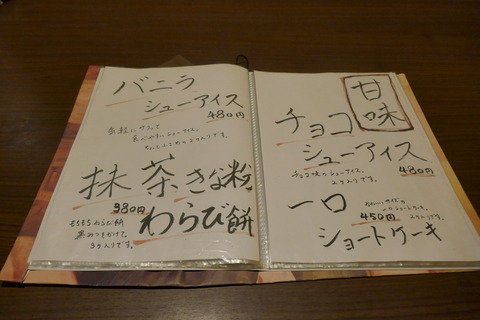 甘味
チョコ
シューアイス
480円
チョコ味のシューアイス。
2ヶ入りです。
一口
ショートケーキ
450円
2ヶ入りです。
バニラ
シューアイス
480円
食べやすいシューアイス。
抹茶きな粉
わらび餅
380円
もちもちわらび餅
黒みつをかけて。
3ヶ入りです。